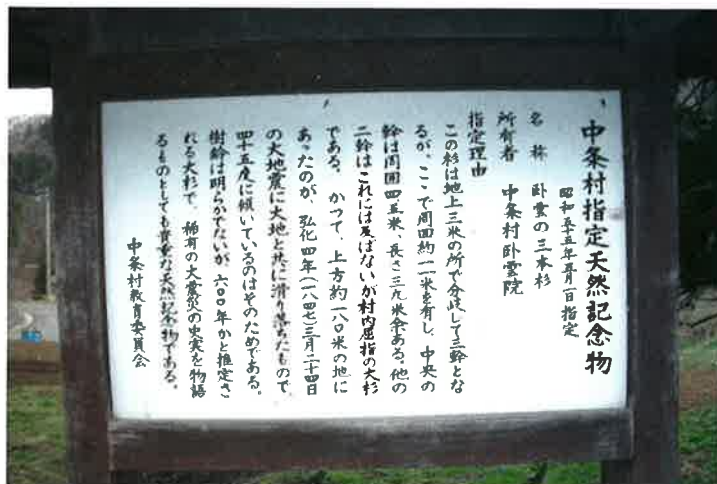 中条村指定天然記念物
昭和五十五年五月一日指定
名称 臥雲の三本杉
所有者 中条村臥雲院
指定理由
この杉は地上三米の所で分岐して三幹とな
るが、ここで周囲約一一米を有し、中央の
幹は周囲四.五米、長さ三九米余ある。他の
二幹はこれには及ばないが村内屈指の大杉
である。かつて、上方約一八〇米の地に
あったのが、弘化四年(一八四七)三月二十四日
の大地震に大地と共に滑り落ちたもので
四十五度に傾いているのはそのためである。
樹齢は明らかでないが、六〇〇年かと推定さ
れる大杉で、稀有の大震災の史実を物語
るものとしても貴重な天然記念物である。
中条村教育委員会